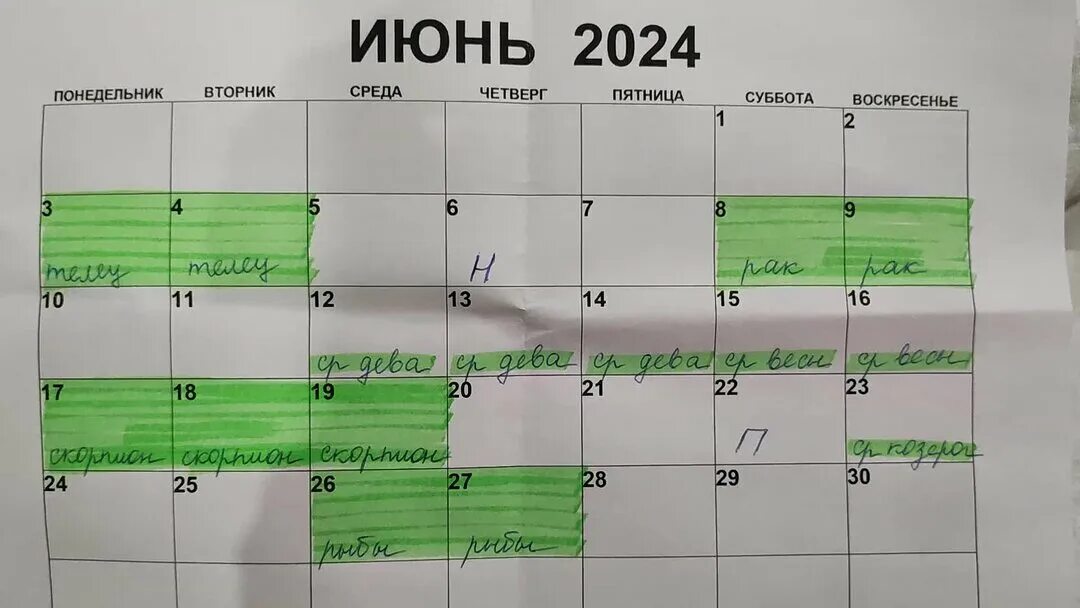 ИЮНЬ 2024
ПОНЕДЕЛЬНИК ВТОРНИК СРЕДА ЧЕТВЕРГ ПЯТНИЦА СУББОТА ВОСКРЕСЕНЬЕ
1 2
3 4 5 6 7 8 9
телец телец Н рак рак
10 11 12 13 14 15 16
ср дева ср дева ср дева ср весы ср весы
17 18 19 20 21 22 23
скорпион скорпион скорпион П ср козерог
24 25 26 27 28 29 30
рыбы рыбы